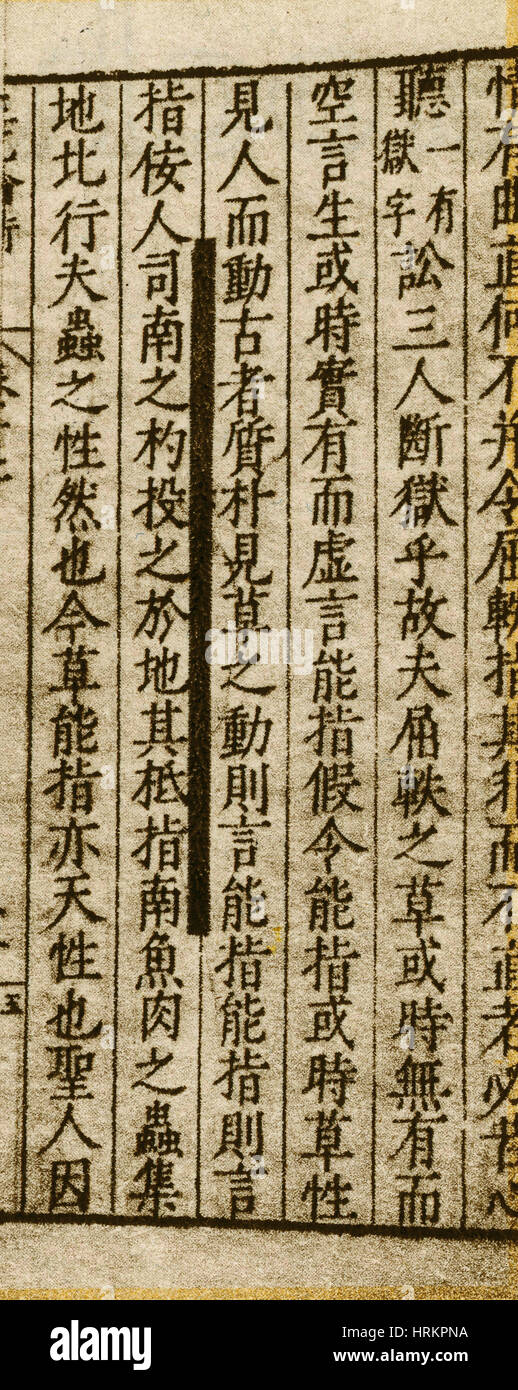 曲直何不并令屈軼指其非而不直者必苦心
聽一有獄字訟三人斷獄乎故夫屈軼之草或時無有而
空言生或時實有而虛言能指假令能指或時草性
見人而動古者質朴見草之動則言能指能指則言
指佞人司南之杓投之於地其柢指南魚肉之蟲集
地北行夫蟲之性然也今草能指亦天性也聖人因
五
alamy stock photo
HRKPNA
www.alamy.com